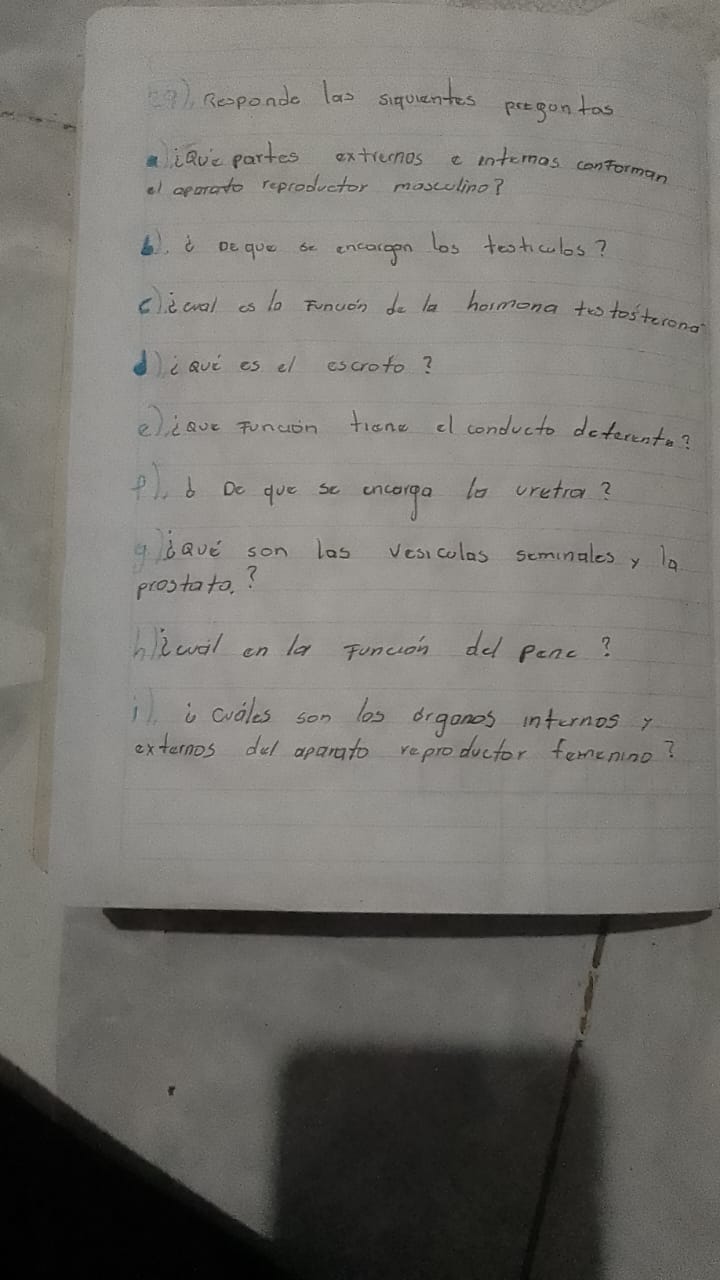 29). Responde las siquientes preguntas
a) ¿Qué partes externos e internas conforman
el aparato reproductor masculino?
b). ¿ De que se encargan los testiculos?
c) ¿cual es la Función de la hormona testosterona
d) ¿ Qué es el escroto?
e). ¿Que Función tiene el conducto deferente?
f). ¿ De que se encarga la uretra?
g) ¿Qué son las vesiculas seminales y la
prostata.?
h) ¿cuál en la Función del pene?
i). ¿ cuáles son los órganos internos y
externos del aparato reproductor femenino?